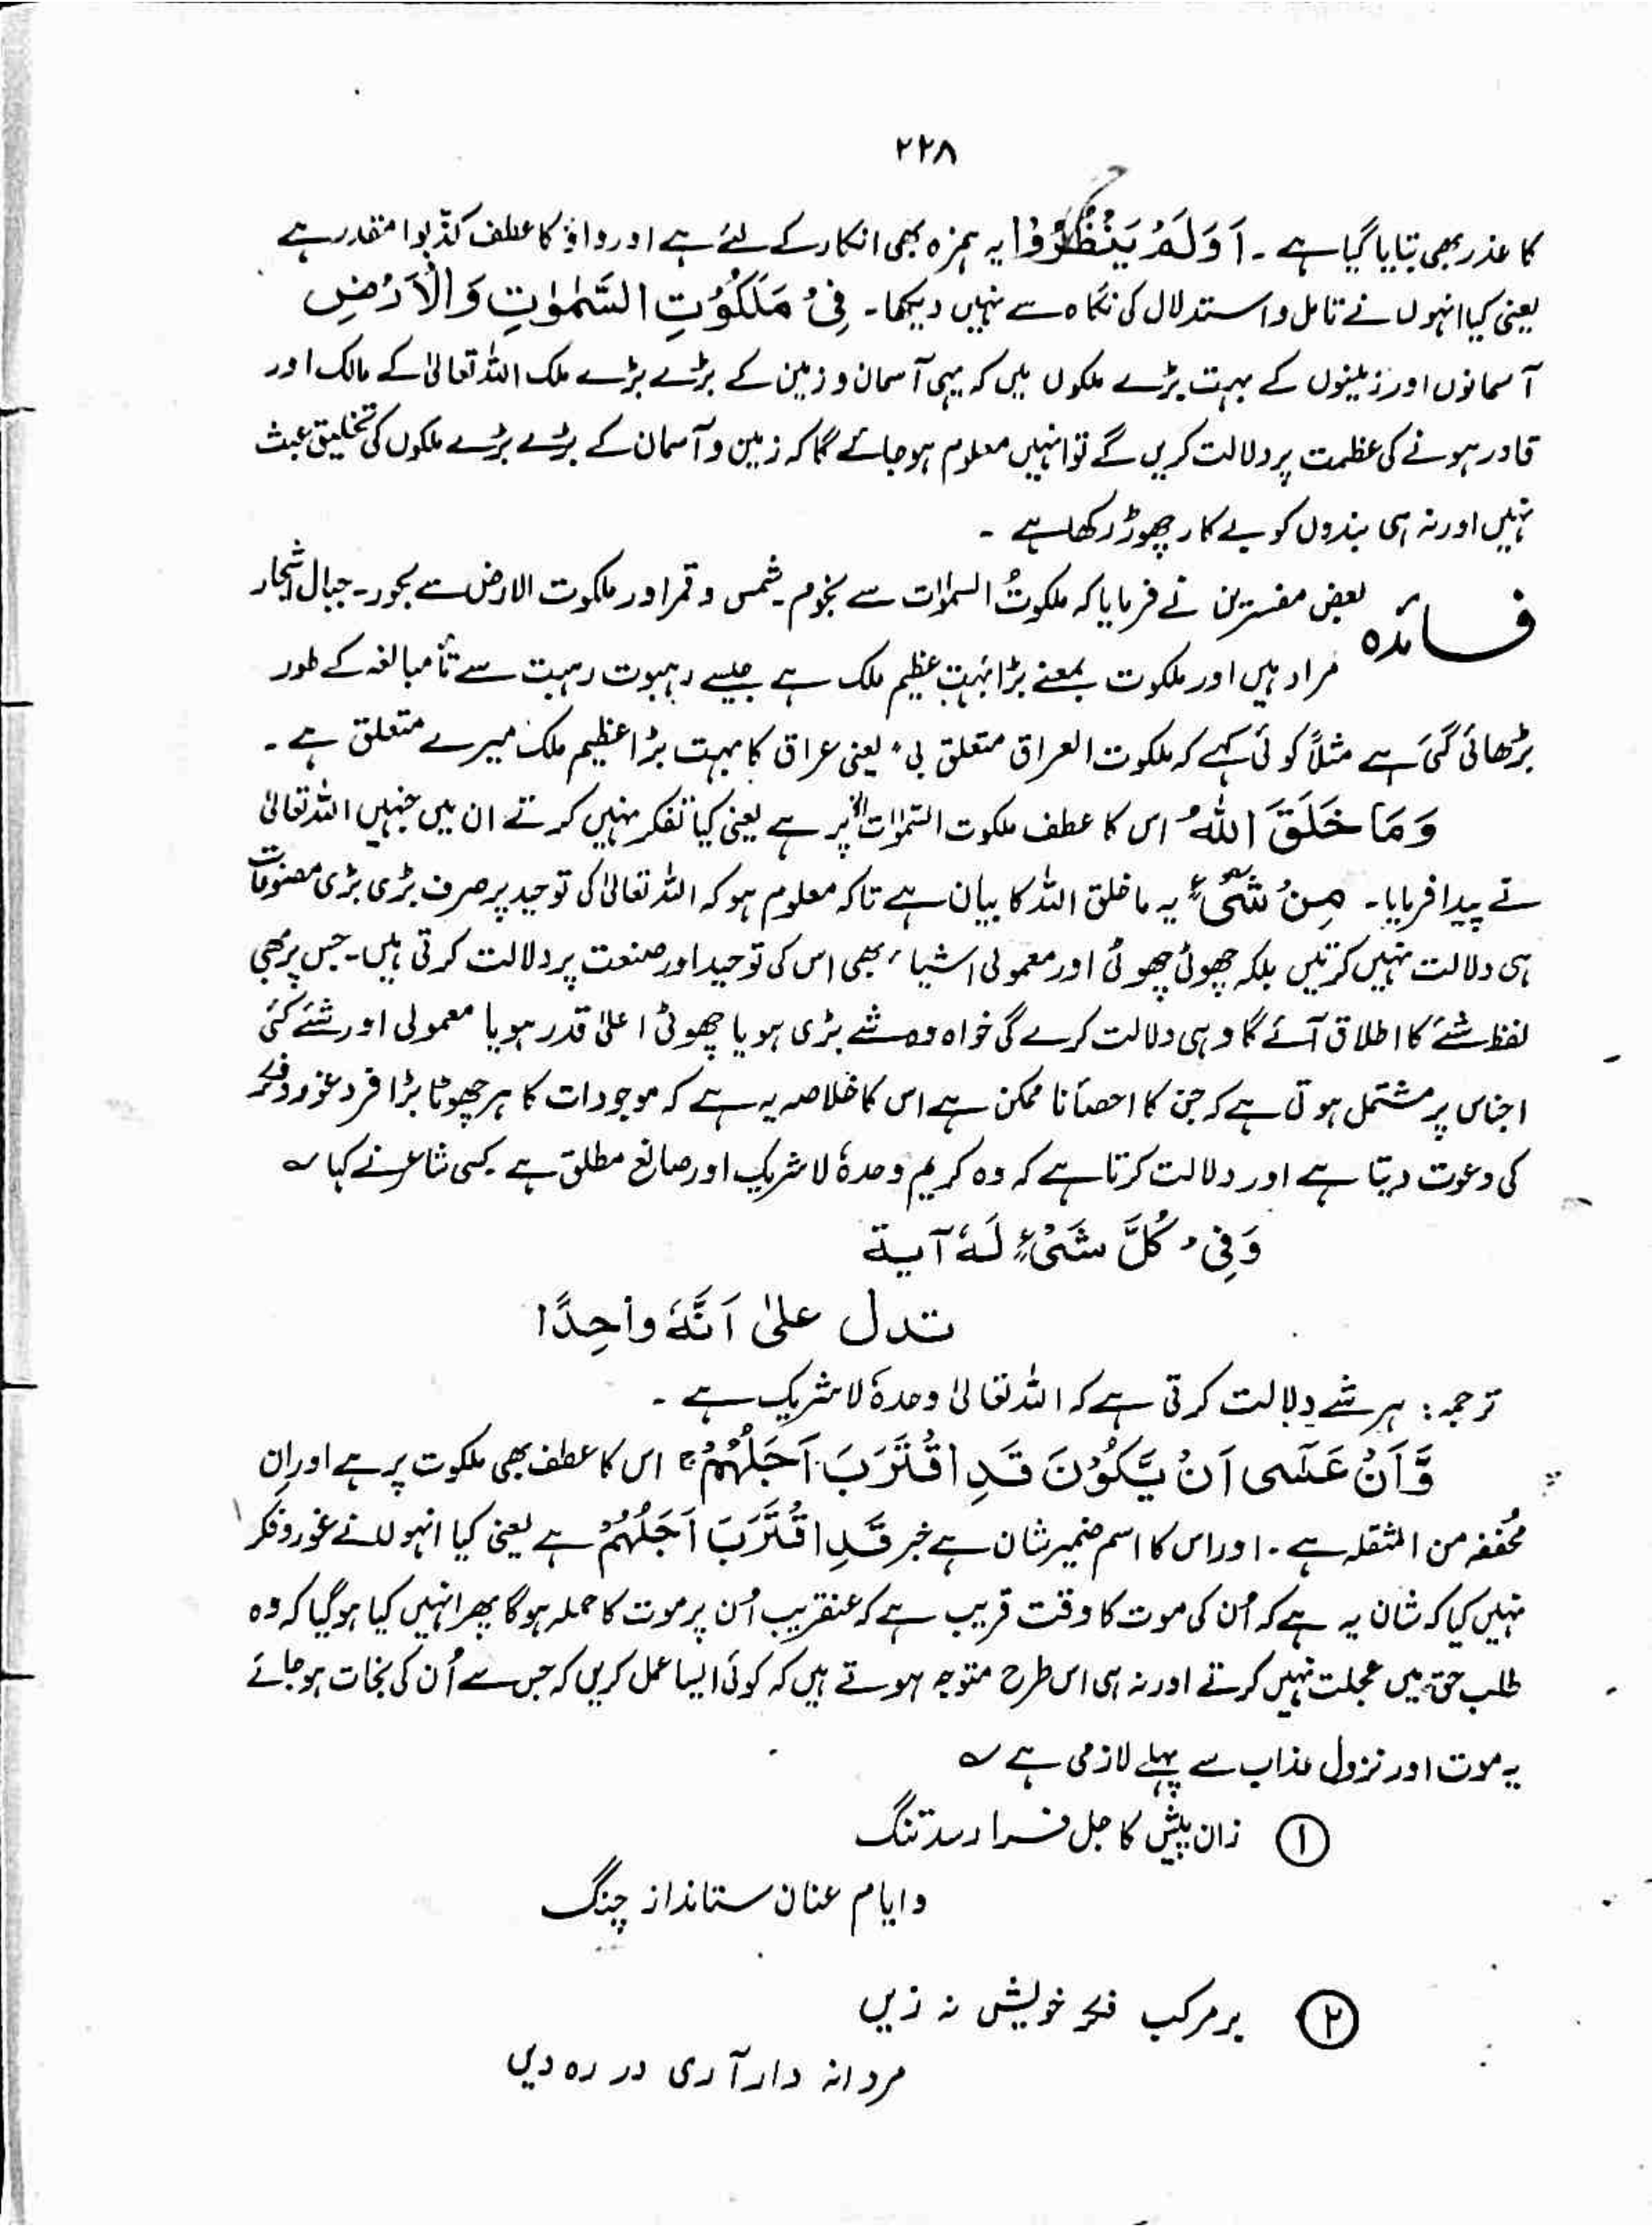 ۲۲۸
کا عذر بھی بتایا گیا ہے ۔ اَوَلَمْ یَنْظُرُوْا یہ ہمزہ بھی انکار کے لئے ہے اور واؤ کا عطف کذّبوا مقدر ہے
یعنی کیا انہوں نے تامل و استدلال کی نگاہ سے نہیں دیکھا۔ فِیْ مَلَکُوْتِ السَّمٰوٰتِ وَالْاَرْضِ
آسمانوں اور زمینوں کے بہت بڑے ملکوں میں کہ یہی آسمان و زمین کے بڑے بڑے ملک اللہ تعالیٰ کے مالک اور
قادر ہونے کی عظمت پر دلالت کریں گے تو انہیں معلوم ہو جائے گا کہ زمین و آسمان کے بڑے بڑے ملکوں کی تخلیق عبث
نہیں اور نہ ہی بندوں کو بے کار چھوڑ رکھا ہے ۔
فائدہ بعض مفسرین نے فرمایا کہ ملکوتُ السمٰوات سے نجوم۔ شمس و قمر اور ملکوت الارض سے بحور۔ جبال اشجار
مراد ہیں اور ملکوت بمعنے بڑا بہت عظیم ملک ہے جیسے رہبوت رہبت سے تأ مبالغہ کے طور
بڑھائی گئی ہے مثلاً کوئی کہے کہ ملکوت العراق متعلق بی، یعنی عراق کا بہت بڑا عظیم ملک میرے متعلق ہے ۔
وَمَا خَلَقَ اللّٰہُ اس کا عطف ملکوت السمٰوات الخ پر ہے یعنی کیا تفکر نہیں کرتے ان میں جنہیں اللہ تعالیٰ
نے پیدا فرمایا۔ مِنْ شَیْءٍ یہ ما خلق اللہ کا بیان ہے تاکہ معلوم ہو کہ اللہ تعالیٰ کی توحید پر صرف بڑی بڑی مصنوعات
ہی دلالت نہیں کرتیں بلکہ چھوٹی چھوٹی اور معمولی اشیاء بھی اس کی توحید اور صنعت پر دلالت کرتی ہیں۔ جس پر بھی
لفظ شئے کا اطلاق آئے گا وہی دلالت کرے گی خواہ وہ شے بڑی ہو یا چھوٹی اعلیٰ قدر ہو یا معمولی اور شئے کئی
اجناس پر مشتمل ہوتی ہے کہ جن کا احصأ نا ممکن ہے اس کا خلاصہ یہ ہے کہ موجودات کا ہر چھوٹا بڑا فرد غور و فکر
کی دعوت دیتا ہے اور دلالت کرتا ہے کہ وہ کریم وحدہٗ لا شریک اور صانع مطلق ہے ۔ کسی شاعر نے کہا ؎
وَفِیْ کُلَّ شَیْءٍ لَہٗ آیۃ
تدل علیٰ اَنَّہٗ واحِدًا
ترجمہ : ہر شے دلالت کرتی ہے کہ اللہ تعالیٰ وحدہٗ لا شریک ہے ۔
وَّاَنْ عَسٰٓی اَنْ یَّکُوْنَ قَدِ اقْتَرَبَ اَجَلُھُمْ ۚ اس کا عطف بھی ملکوت پر ہے اور اِن
مُخففہ من المثقلہ ہے ۔ اور اس کا اسم ضمیر شان ہے خبر قَدِ اقْتَرَبَ اَجَلُھُمْ ہے یعنی کیا انہوں نے غور و فکر
نہیں کیا کہ شان یہ ہے کہ اُن کی موت کا وقت قریب ہے کہ عنقریب اُن پر موت کا حملہ ہوگا پھر انہیں کیا ہوگیا کہ وہ
طلب حق میں عجلت نہیں کرتے اور نہ ہی اس طرح متوجہ ہوتے ہیں کہ کوئی ایسا عمل کریں کہ جس سے اُن کی نجات ہو جائے
یہ موت اور نزول عذاب سے پہلے لازمی ہے ؎
① زان پیش کاجل فرا رسد تنگ
وایام عنان ستاند از چنگ
② بر مرکب فکر خویش نہ زیں
مردانہ دار آری در رہ دیں